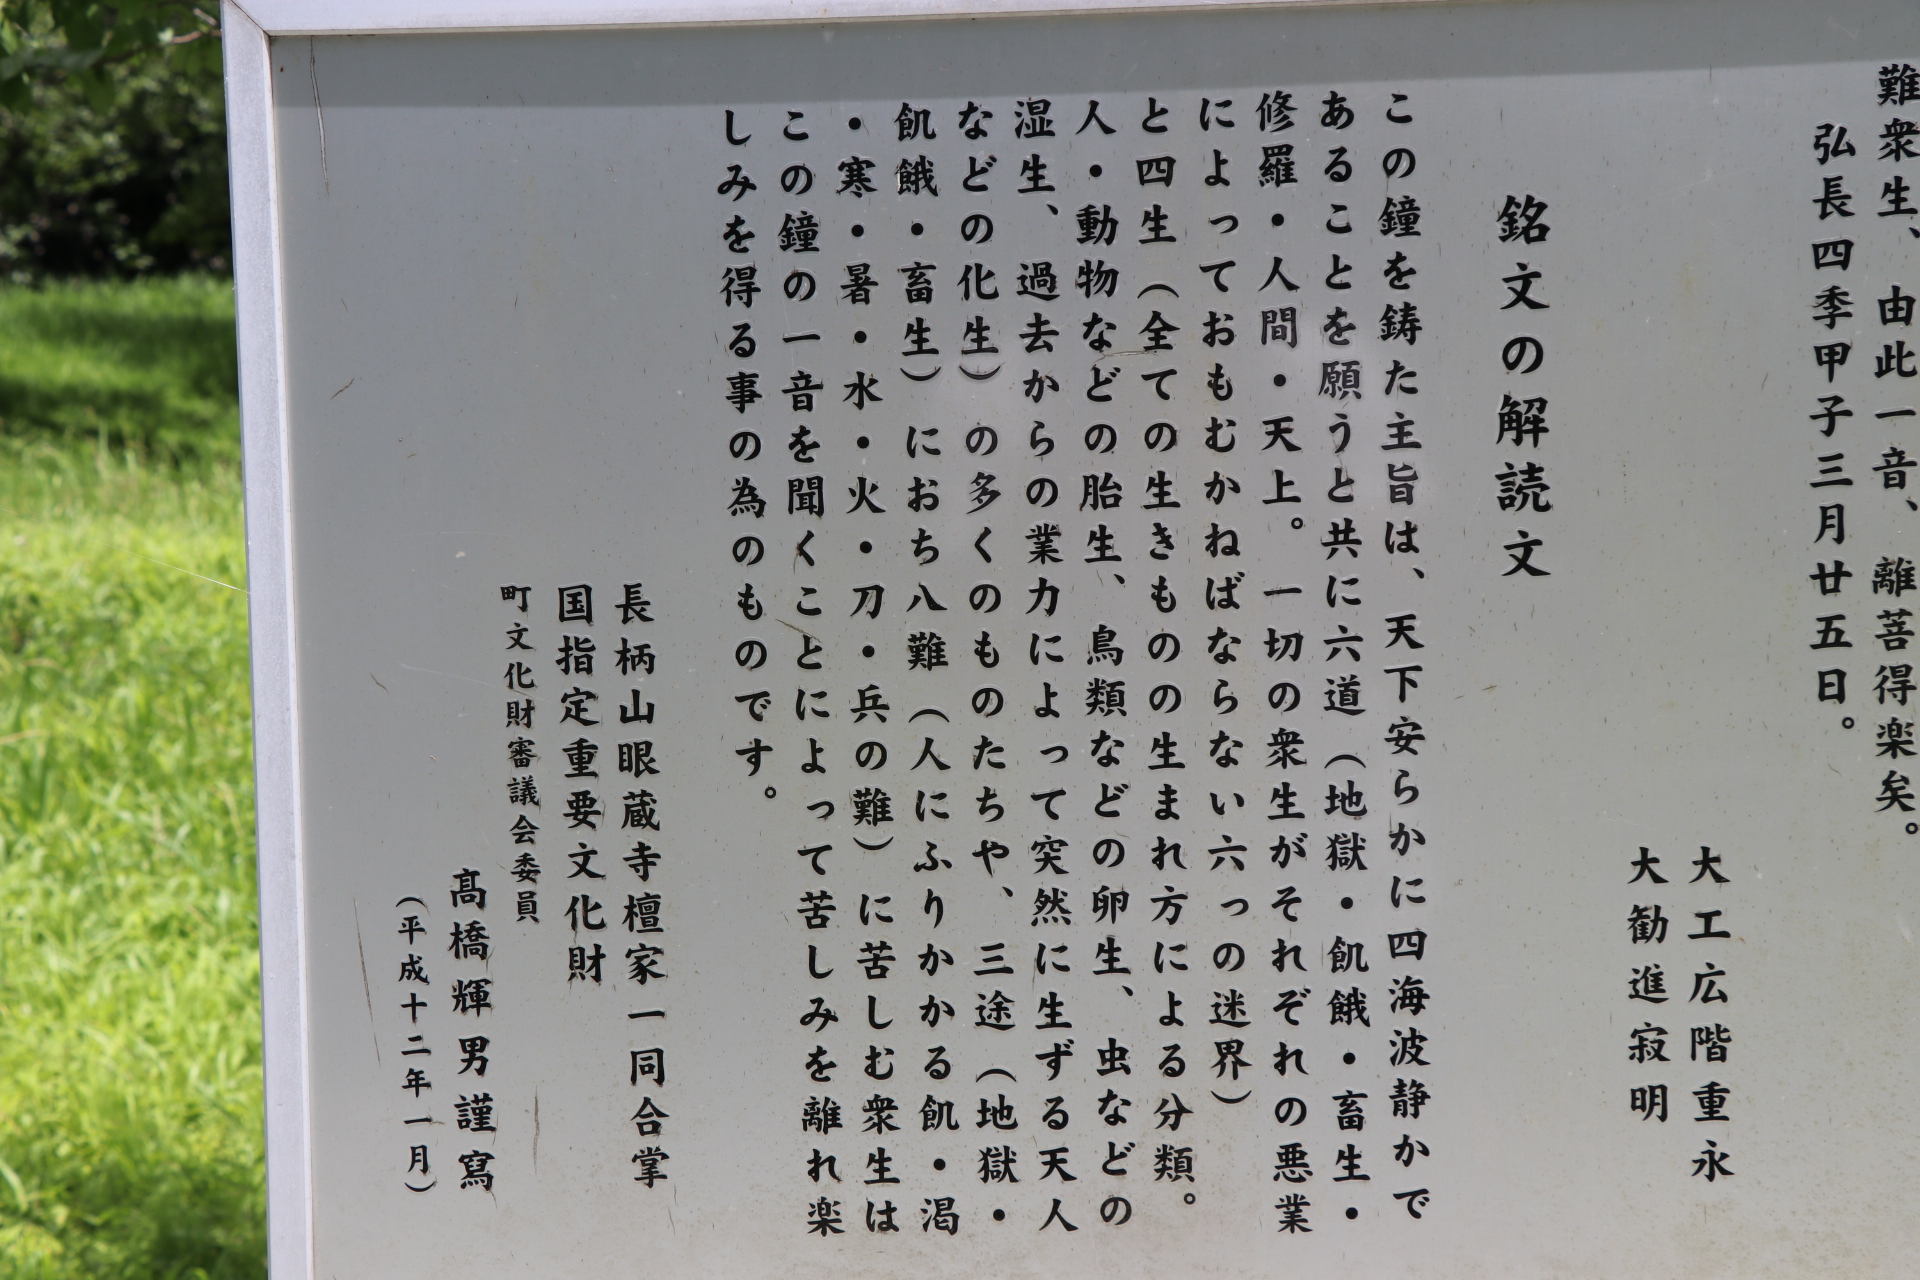 難衆生、由此一音、離菩得楽矣。
弘長四季甲子三月廿五日。
大工広階重永
大勧進寂明
銘文の解読文
この鐘を鋳た主旨は、天下安らかに四海波静かで
あることを願うと共に六道（地獄・飢餓・畜生・
修羅・人間・天上。一切の衆生がそれぞれの悪業
によっておもむかねばならない六っの迷界）
と四生（全ての生きものの生まれ方による分類。
人・動物などの胎生、鳥類などの卵生、虫などの
湿生、過去からの業力によって突然に生ずる天人
などの化生）の多くのものたちや、三途（地獄・
飢餓・畜生）におち八難（人にふりかかる飢・渇
・寒・暑・水・火・刀・兵の難）に苦しむ衆生は
この鐘の一音を聞くことによって苦しみを離れ楽
しみを得る事の為のものです。
長柄山眼蔵寺檀家一同合掌
国指定重要文化財
町文化財審議会委員
髙橋輝男謹寫
（平成十二年一月）